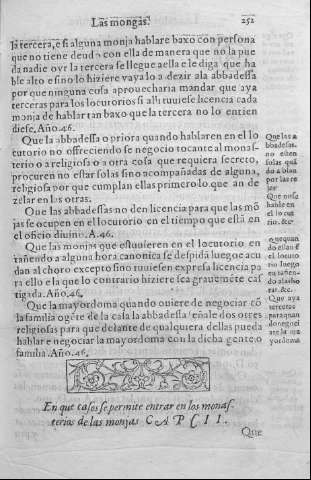 Las mongas.
252
la tercera, e si alguna monja hablare baxo con persona
que no tiene deudo con ella de manera que no la pue
da nadie oyr la tercera se llegue a ella e le diga que ha
ble alto e si no lo hiziere vaya lo a dezir ala abbadessa
por que ninguna cosa aprouecharia mandar que aya
terceras para los locutorios si alli tuuiese licencia cada
monja de hablar tan baxo que la tercera no lo entien
diese, Año.46.
Que la abbadessa o priora quando hablaren en el lo
cutorio no offreciendo se negocio tocante al monas-
terio o a religiosa o a otra cosa que requiera secreto,
procuren no estar solas sino acompañadas de alguna,
religiosa por que cumplan ellas primero lo que an de
zelar en las otras.
Que las abbadessas no den licencia para que las mõ
jas se ocupen en el locutorio en el tiempo que está en
el oficio diuino. A.46.
Que las monjas que estuuieren en el locutorio en
tañendo a alguna hora canonica se despidã luego e acu
dan al choro excepto sino tuuiesen expresa licencia pa
ra ello e la que lo contrario hiziere sea grauemẽte cas
tigada. Año.46.
Que la mayordoma quando ouiere de negociar cõ
la familia o gẽte de la casa la abbadessa señale dos otres
religiosas para que delante de qualquiera dellas pueda
hablar e negociar la mayordoma con la dicha gente o
familia. Año.46.
Que las a
bbadesas.
no esten
solas quã
do ablan
por las re
jas
hable en
el locuto
rio. &c.
do estan ẽ
el locuto
rio luego
en tañen-
do al acho
rar. &c.
Que aya
terceras
para quan
do negoci
are la ma
yordoma
En que casos se permite entrar en los monas-
terios de las monjas CAP CII.
Que